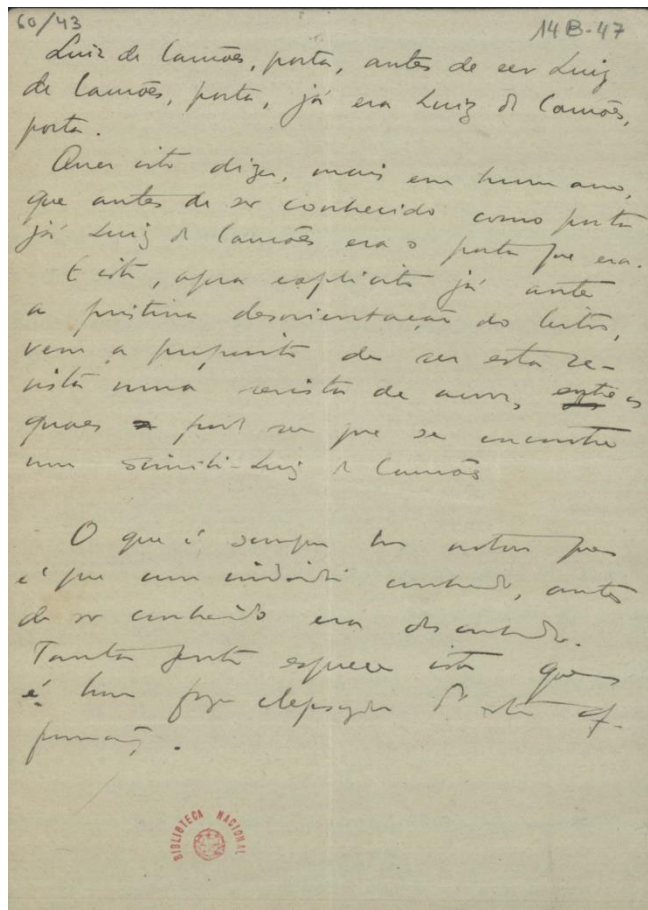 60/43
14B-47
Luiz de Camões, poeta, antes de ser Luiz
de Camões, poeta, já era Luiz de Camões,
poeta.
Quer isto dizer, mais em humano,
que antes de ser conhecido como poeta
já Luiz de Camões era o poeta que era.
E isto, agora explicito já ante
a pristina desorientação do leitor,
vem a proposito de ser esta re-
vista uma revista de novos, entre os
quaes pode ser que se encontre
um simili-Luiz de Camões
O que é sempre bom notar
é que um individuo conhecido, antes
de ser conhecido era desconhecido.
Tanta gente esquece isto que
é bom
BIBLIOTECA NACIONAL